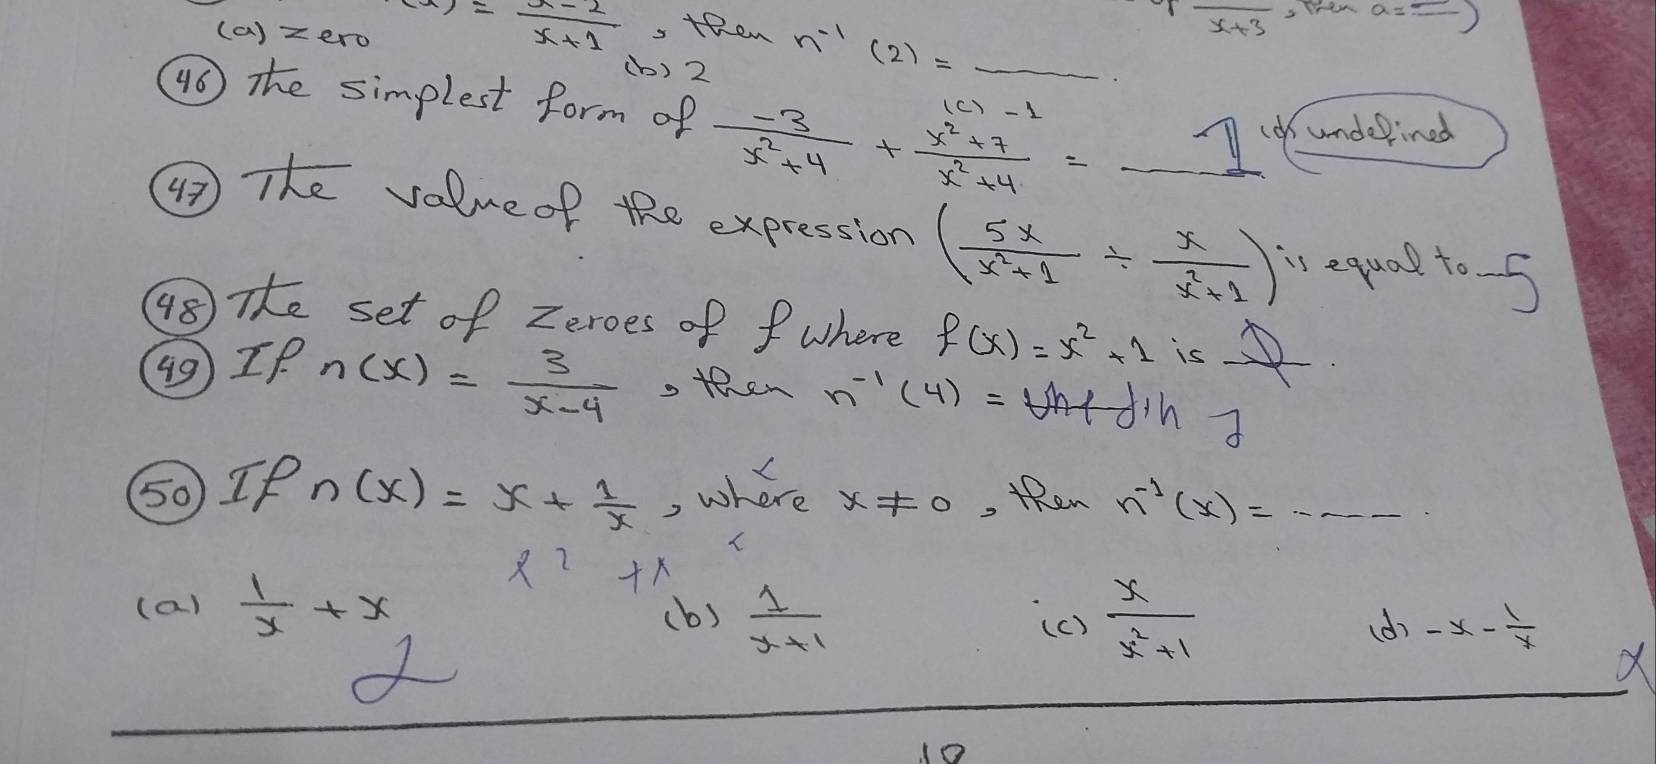 (x) = x-2/x+1, then n⁻¹ (2) = ____.
x+3, then a=__)
(a) zero (b) 2 (c) -1 (d) undefined
(46) The simplest form of -3/x²+4 + x²+7/x²+4 = 1
(47) The value of the expression (5x/x²+1 ÷ x/x²+1) is equal to 5
(48) The set of zeroes of f where f(x) = x²+1 is ∅.
(49) If n(x) = 3/x-4, then n⁻¹(4) =
(50) If n(x) = x + 1/x, where x ≠ 0, then n⁻¹(x) = ----.
(a) 1/x + x (b) 1/x+1 (c) x/x²+1 (d) -x - 1/x
10